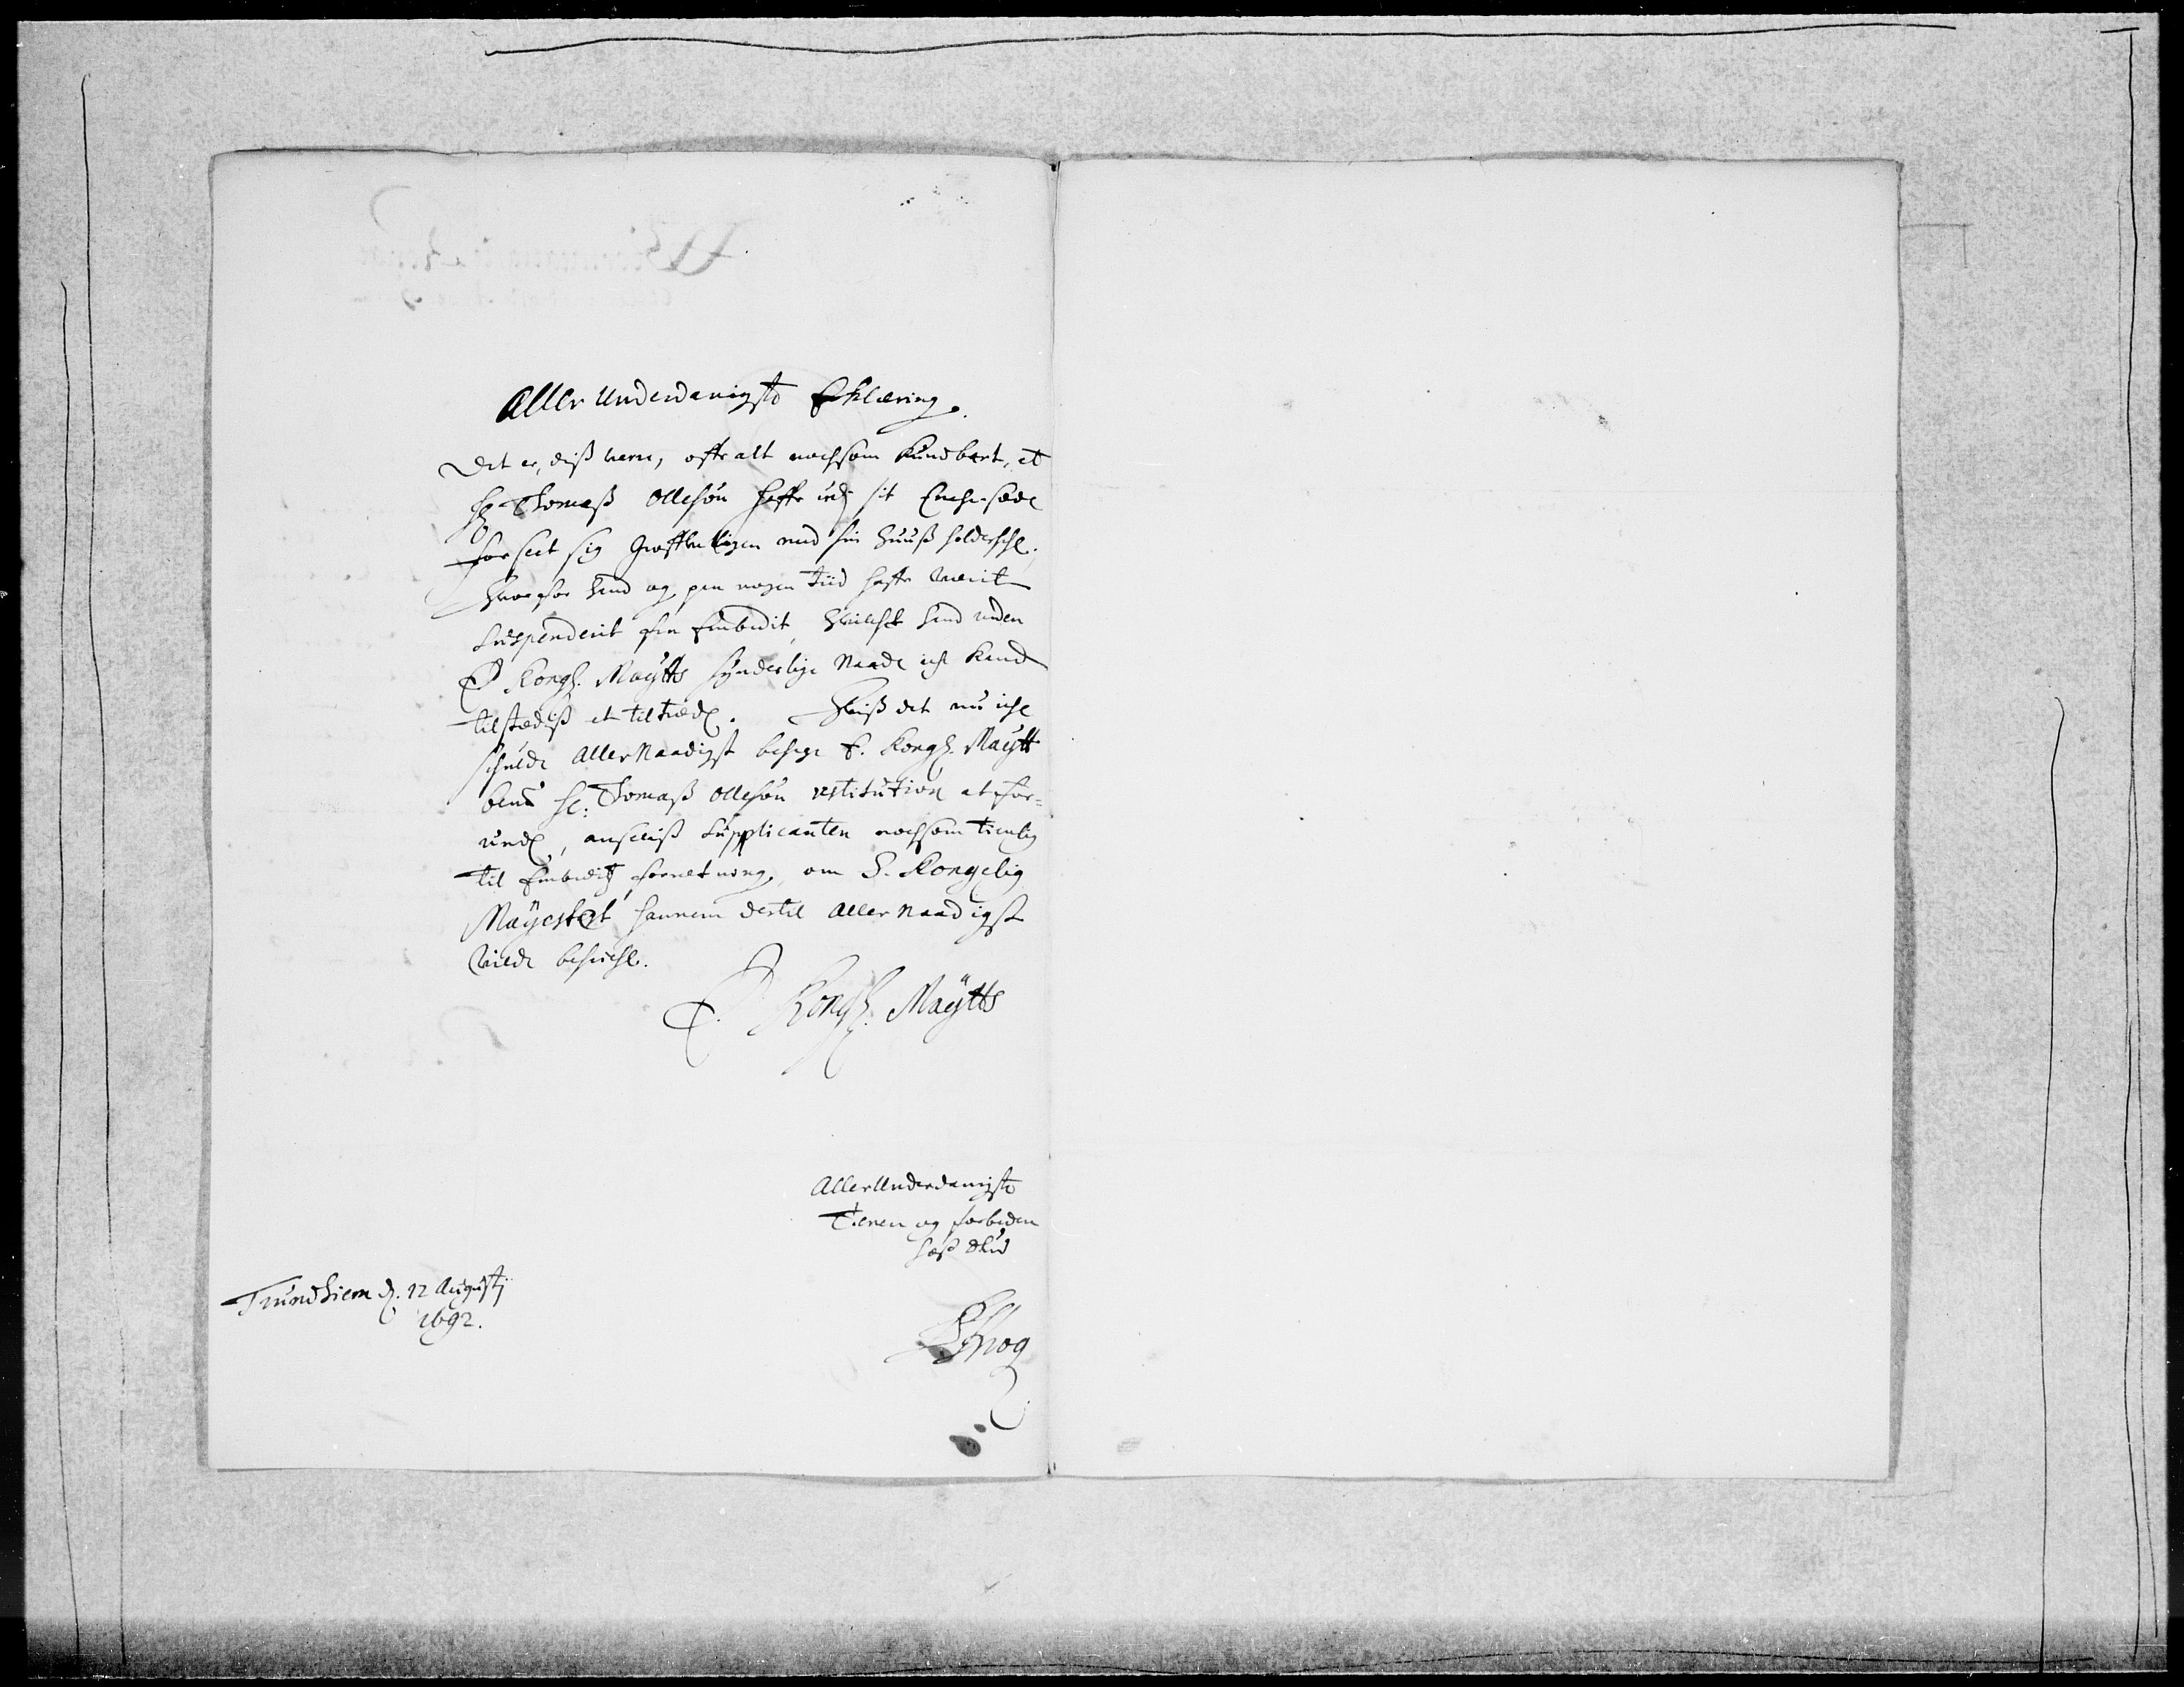 Aller Underdanigste Erklæring.
Det er, diß verre, offr alt nochsom Kundbart, at
Hr Thomaß Ollesøn haffr udj sit Enche-sæde
forseet sig med sin Huußholderske,
Hvorfor hand og paa nogen tiid haffr værit
Suspenderit fra Embedit, hvilchet hand uden
E Kongl. Maÿtts synderlige Naade iche kand
tilstædiß at tiltræde. Hviß det nu iche
schulde Allernaadigst behage E. Kongl. Maÿtt
bem.te Hr. Thomaß Ollesøn restitution at for-
unde, ansceiß Supplicanten nochsom tienlig
til Embedetz forretning, om E. Kongelig
Maÿestet hannem dertil Aller naadigst
vilde beschichet.
E. Kongl. Maÿtts
Aller Underdanigste
Tienere og forbeder
hoß Gud
Trundhiem d. 12 Augustj
1692.
Krog